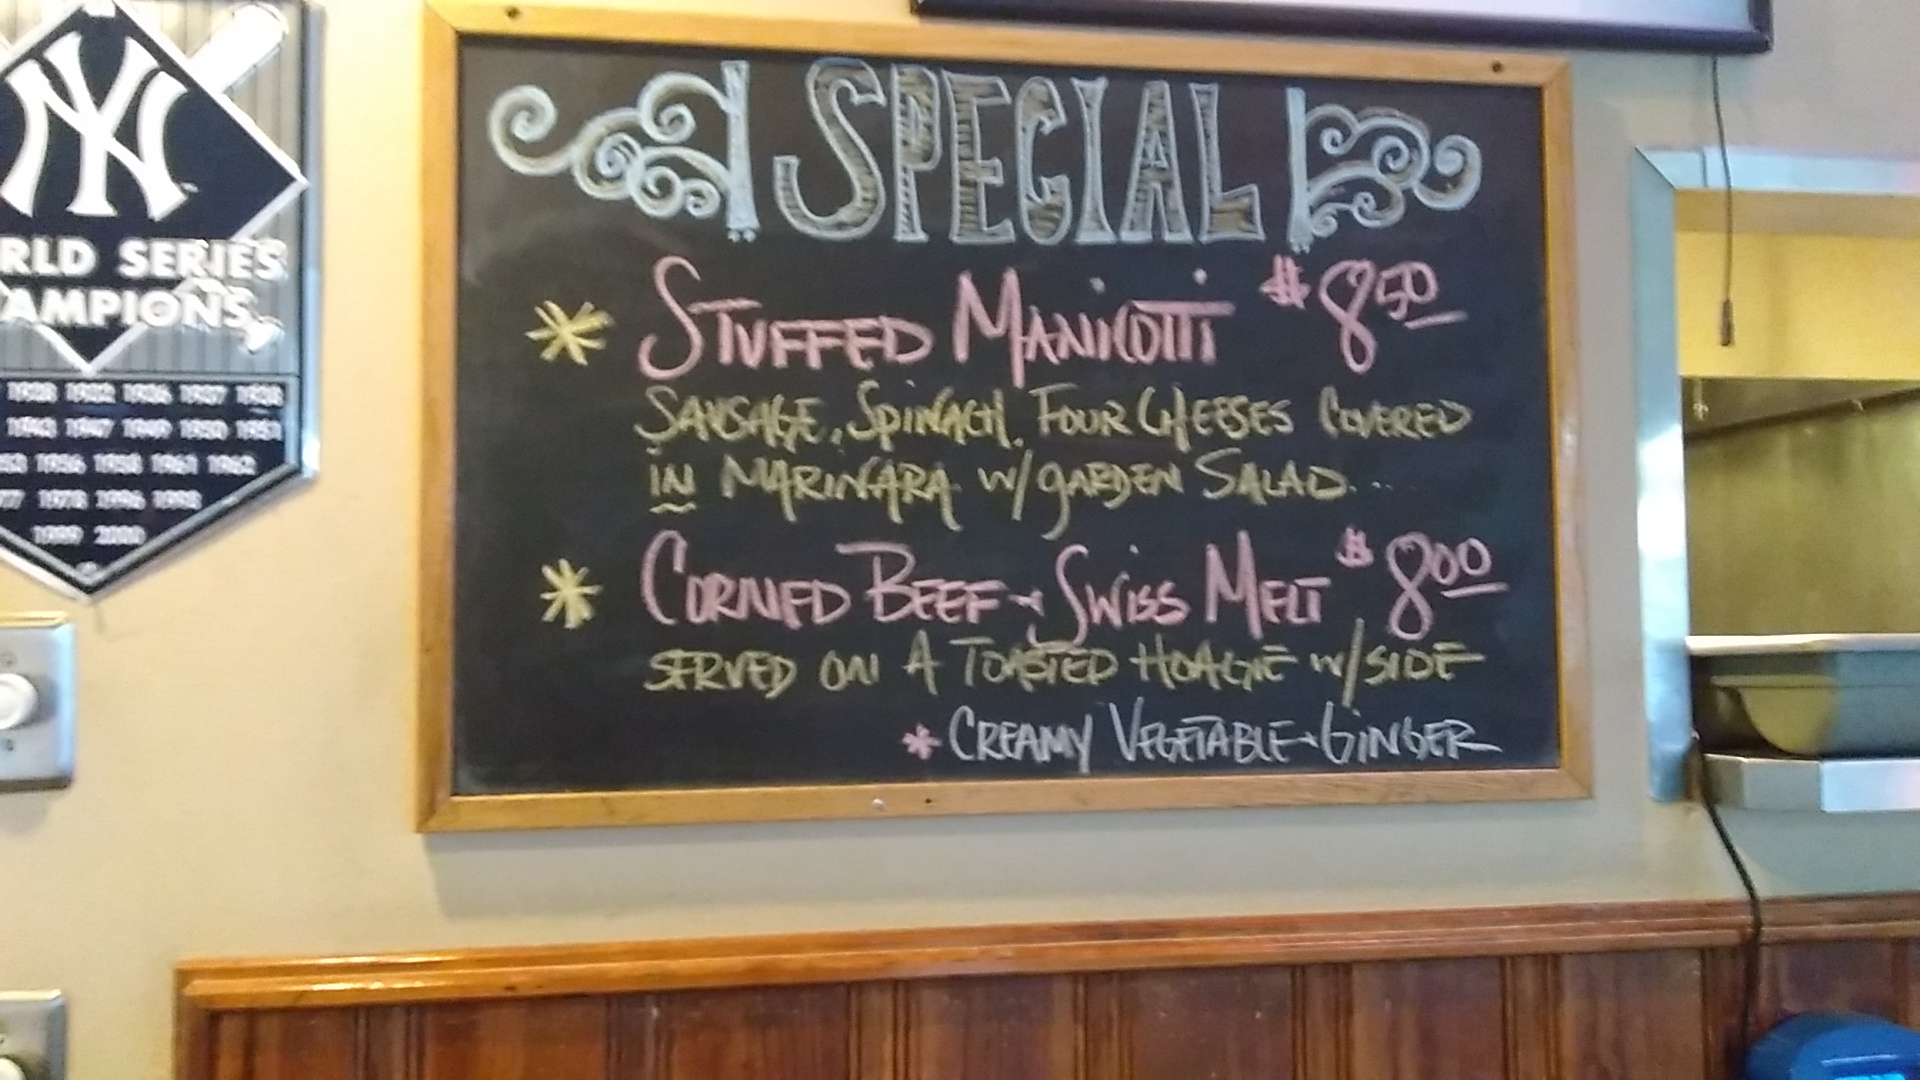 NY
RLD SERIES
AMPIONS
1928 1932 1936 1937 1938
1943 1947 1949 1950 1951
1956 1958 1961 1962
77 1978 1996 1998
1999 2000
SPECIAL
* STUFFED MANICOTTI $8.50
SAUSAGE, SPINACH, FOUR CHEESES COVERED
IN MARINARA W/GARDEN SALAD...
* CORNED BEEF + SWISS MELT $8.00
SERVED ON A TOASTED HOAGIE W/SIDE
* CREAMY VEGETABLE + GINGER